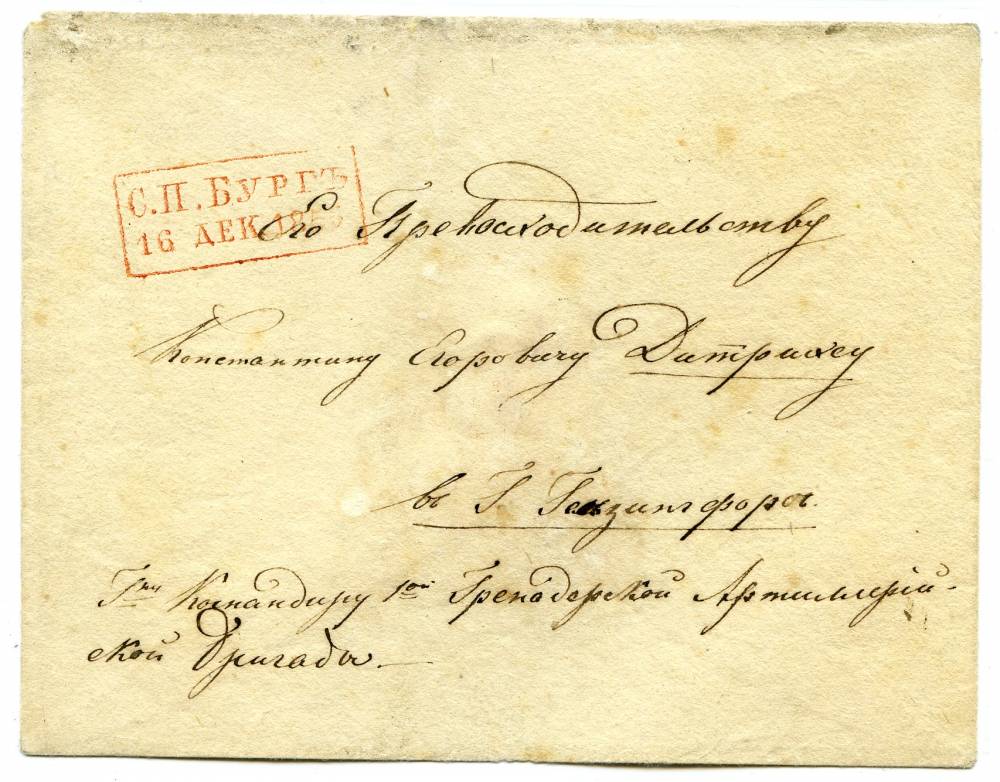 С.П.БУРГЪ
16 ДЕК.
Его Превосходительству
Константину Егоровичу Дитрихсу
въ Г.
Командиру 1ой Гренадерской Артиллерій-
ской Бригады.